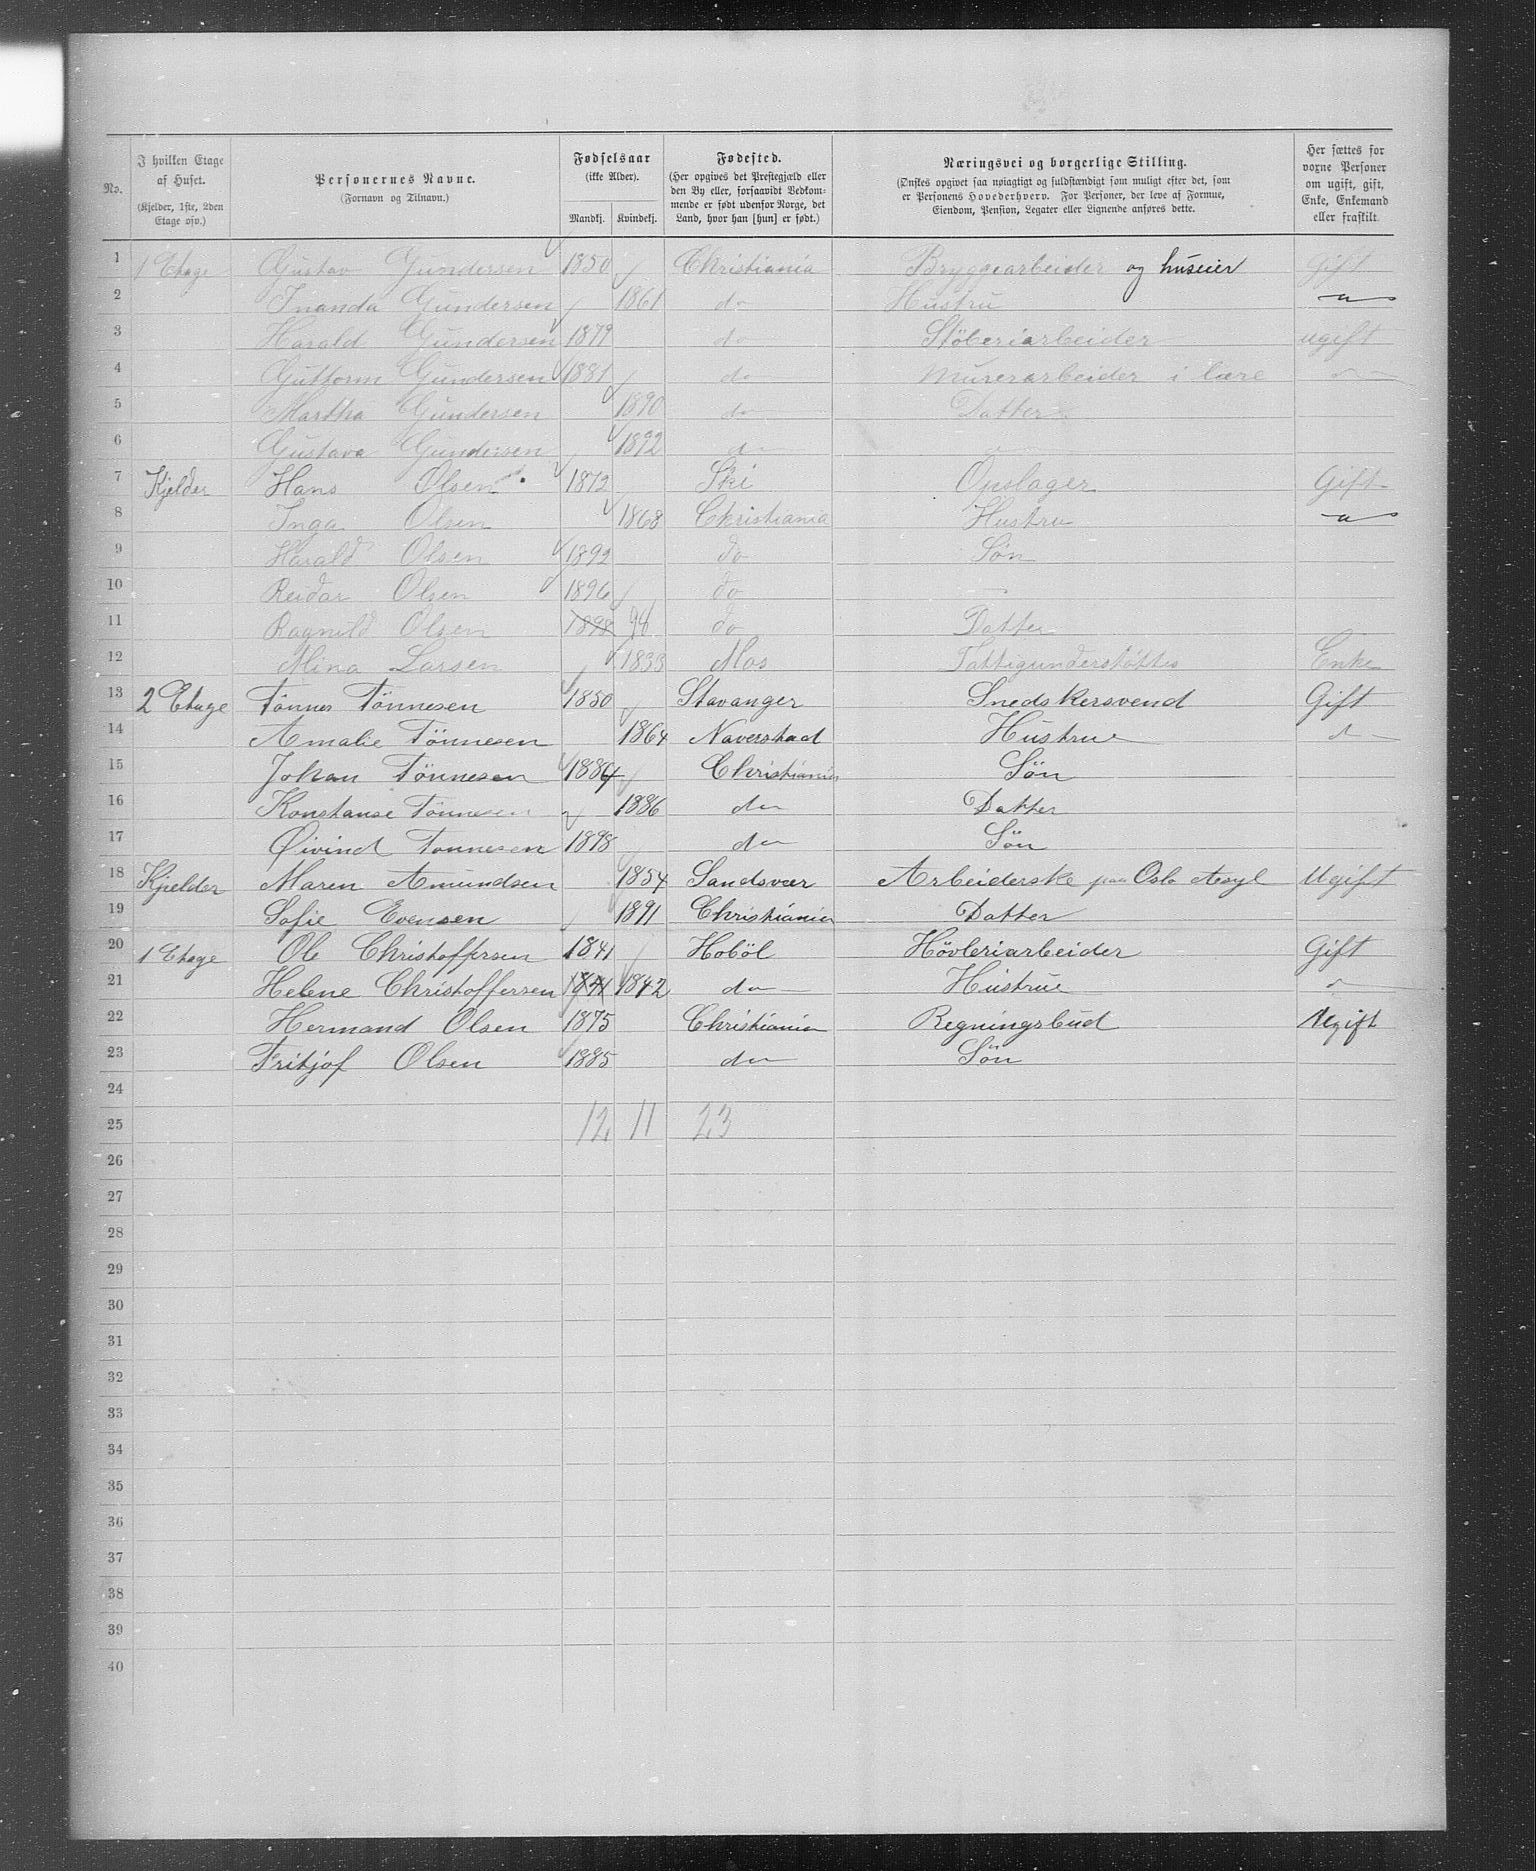 No. | I hvilken Etage af Huset. (Kjelder, 1ste, 2den Etage osv.) | Personernes Navne. (Fornavn og Tilnavn.) | Fødselsaar (ikke Alder). Mandkj. | Kvindekj. | Fødested. (Her opgives det Prestegjæld eller den By eller, forsaavidt Vedkommende er født udenfor Norge, det Land, hvor han [hun] er født.) | Næringsvei og borgerlige Stilling. (Ønskes opgivet saa nøiagtigt og fuldstændigt som muligt efter det, som er Personens Hovederhverv. For Personer, der leve af Formue, Eiendom, Pension, Legater eller Lignende anføres dette. | Her sættes for voxne Personer om ugift, gift, Enke, Enkemand eller fraskilt.
1 | 1 Etage | Gustav Gundersen | 1850 | | Christiania | Bryggearbeider og huseier | Gift
2 | | Inanda Gundersen | | 1861 | do | Hustru |
3 | | Harald Gundersen | 1879 | | do | Støberiarbeider | ugift
4 | | Guttorm Gundersen | 1881 | | do | Murerarbeider i lære |
5 | | Martha Gundersen | | 1890 | do | Datter |
6 | | Gustava Gundersen | | 1892 | do | |
7 | Kjelder | Hans Olsen | 1872 | | Ski | Opslager | Gift
8 | | Inga Olsen | | 1868 | Christiania | Hustru |
9 | | Harald Olsen | 1892 | | do | Søn |
10 | | Reidar Olsen | 1896 | | do | |
11 | | Ragnild Olsen | 1898 | 98 | do | Datter |
12 | | Mina Larsen | | 1833 | Mos | Fattigunderstøttes | Enke
13 | 2 Etage | Tønnes Tönnesen | 1850 | | Stavanger | Snedskersvend | Gift
14 | | Amalie Tönnesen | | 1864 | Naverstad | Hustrue |
15 | | Johan Tönnesen | 1884 | | Christiania | Sön |
16 | | Konstanse Tönnesen | | 1886 | do | Datter |
17 | | Øivind Tonnesen | 1898 | | do | Sön |
18 | Kjelder | Maren Amundsen | | 1854 | Sandsvær | Arbeiderske paa Oslo Asyl | Ugift
19 | | Sofie Evensen | | 1891 | Christiania | Datter |
20 | 1 Etage | Ole Christoffersen | 1841 | | Hoböl | Hövleriarbeider | Gift
21 | | Helene Christoffersen | 1841 | 1842 | do | Hustrue |
22 | | Hermand Olsen | 1875 | | Christiania | Regningsbud | Ugift
23 | | Fritjof Olsen | 1885 | | do | Sön |
24
25 | | | 12 | 11 | 23
26
27
28
29
30
31
32
33
34
35
36
37
38
39
40